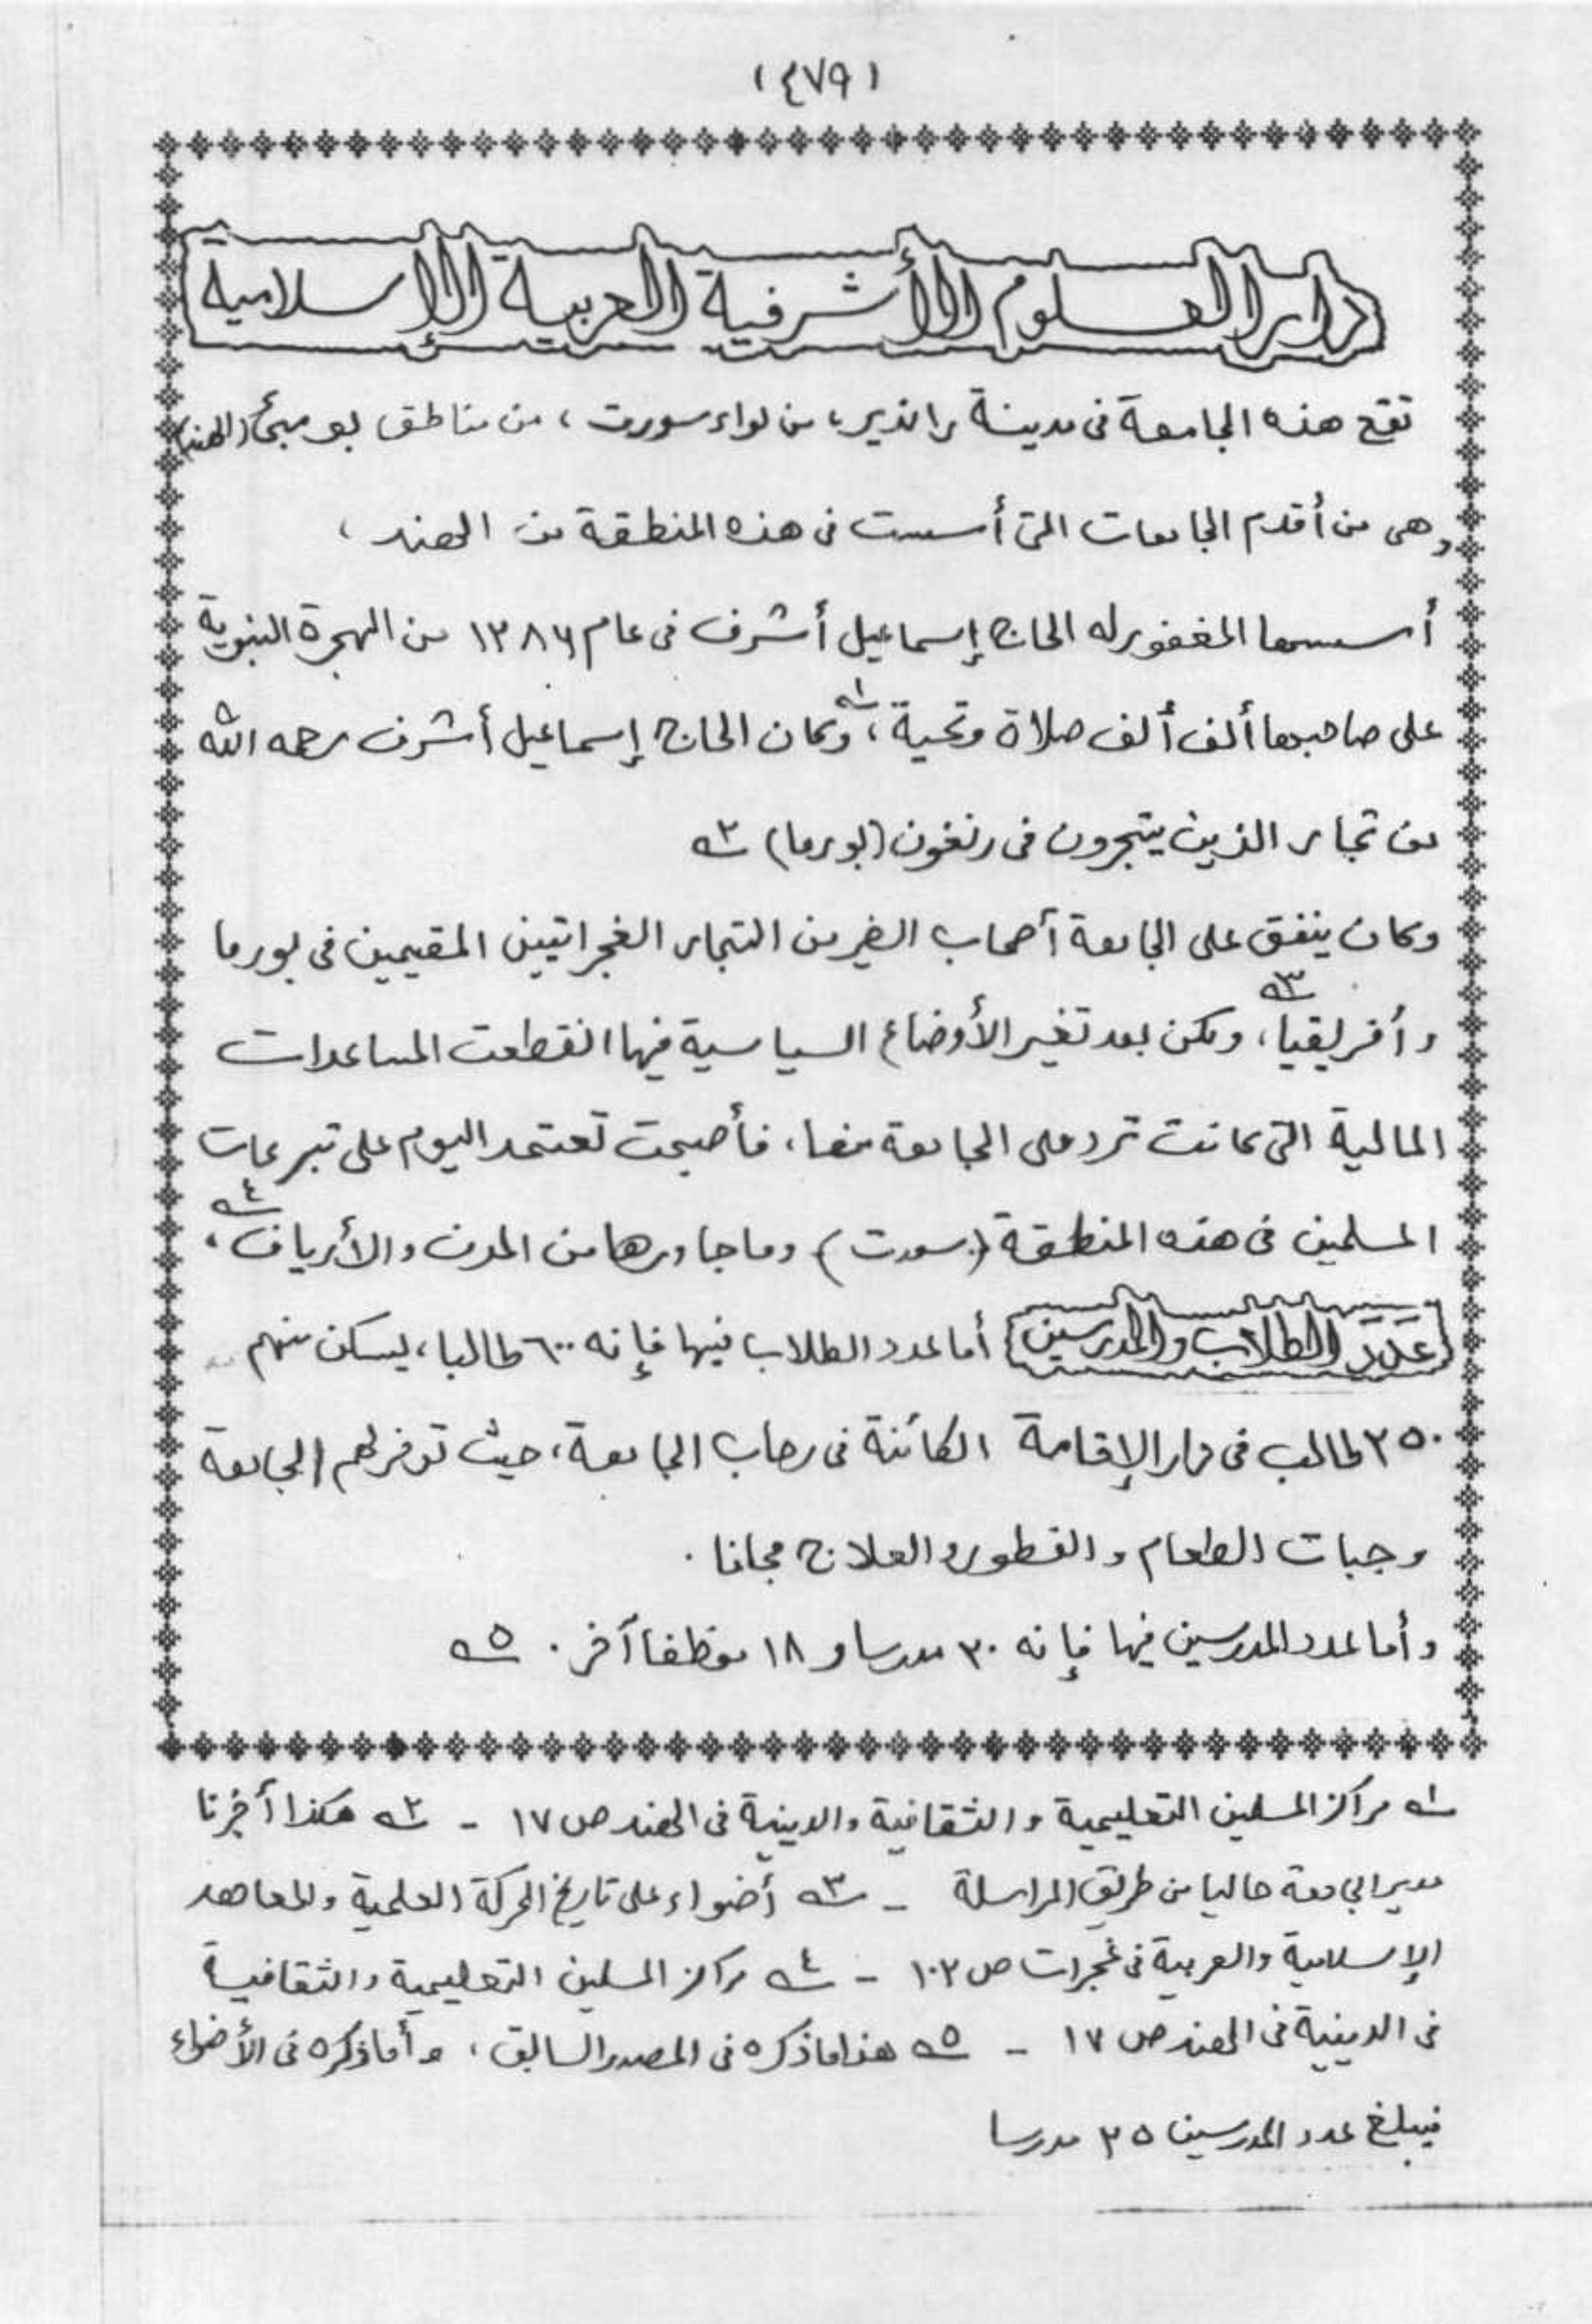 (٤٧٩)
دار العلوم الأشرفية العربية الإسلامية
تقع هذه الجامعة في مدينة راندير، من لواء سورت، من مناطق بومبئ (الهند)
وهي من أقدم الجامعات التي أسست في هذه المنطقة من الهند،
أسسها المغفور له الحاج إسماعيل أشرف في عام ١٢٨٦ من الهجرة النبوية
على صاحبها ألف ألف صلاة وتحية،١ وكان الحاج إسماعيل أشرف رحمه الله
من تجار الذين يتجرون في رنغون (بورما) ٢
وكان ينفق على الجامعة أصحاب الخير من التجار الغجراتيين المقيمين في بورما
وأفريقيا،٣ ولكن بعد تغير الأوضاع السياسية فيها انقطعت المساعدات
المالية التي كانت ترد على الجامعة منها، فأصبحت تعتمد اليوم على تبرعات
المسلمين في هذه المنطقة (سورت) وما جاورها من المدن والأرياف،٤
عدد الطلاب والمدرسين أما عدد الطلاب فيها فإنه ٦٠٠ طالبا، يسكن منهم
٢٥٠ طالب في دار الإقامة الكائنة في رحاب الجامعة، حيث توفر لهم الجامعة
وجبات الطعام والفطور والعلاج مجانا.
وأما عدد المدرسين فيها فإنه ٣٠ مدرسا و ١٨ موظفا آخر. ٥
١ مراكز المسلمين التعليمية والثقافية والدينية في الهند ص ١٧ - ٢ هكذا أخبرنا
مدير الجامعة حاليا من طريق المراسلة - ٣ أضواء على تاريخ الحركة العلمية والمعاهد
الإسلامية والعربية في غجرات ص ١٠٢ - ٤ مراكز المسلمين التعليمية والثقافية
في الدينية في الهند ص ١٧ - ٥ هذا ما ذكره في المصدر السابق، وأما ذكره في الأضواء
فيبلغ عدد المدرسين ٢٥ مدرسا